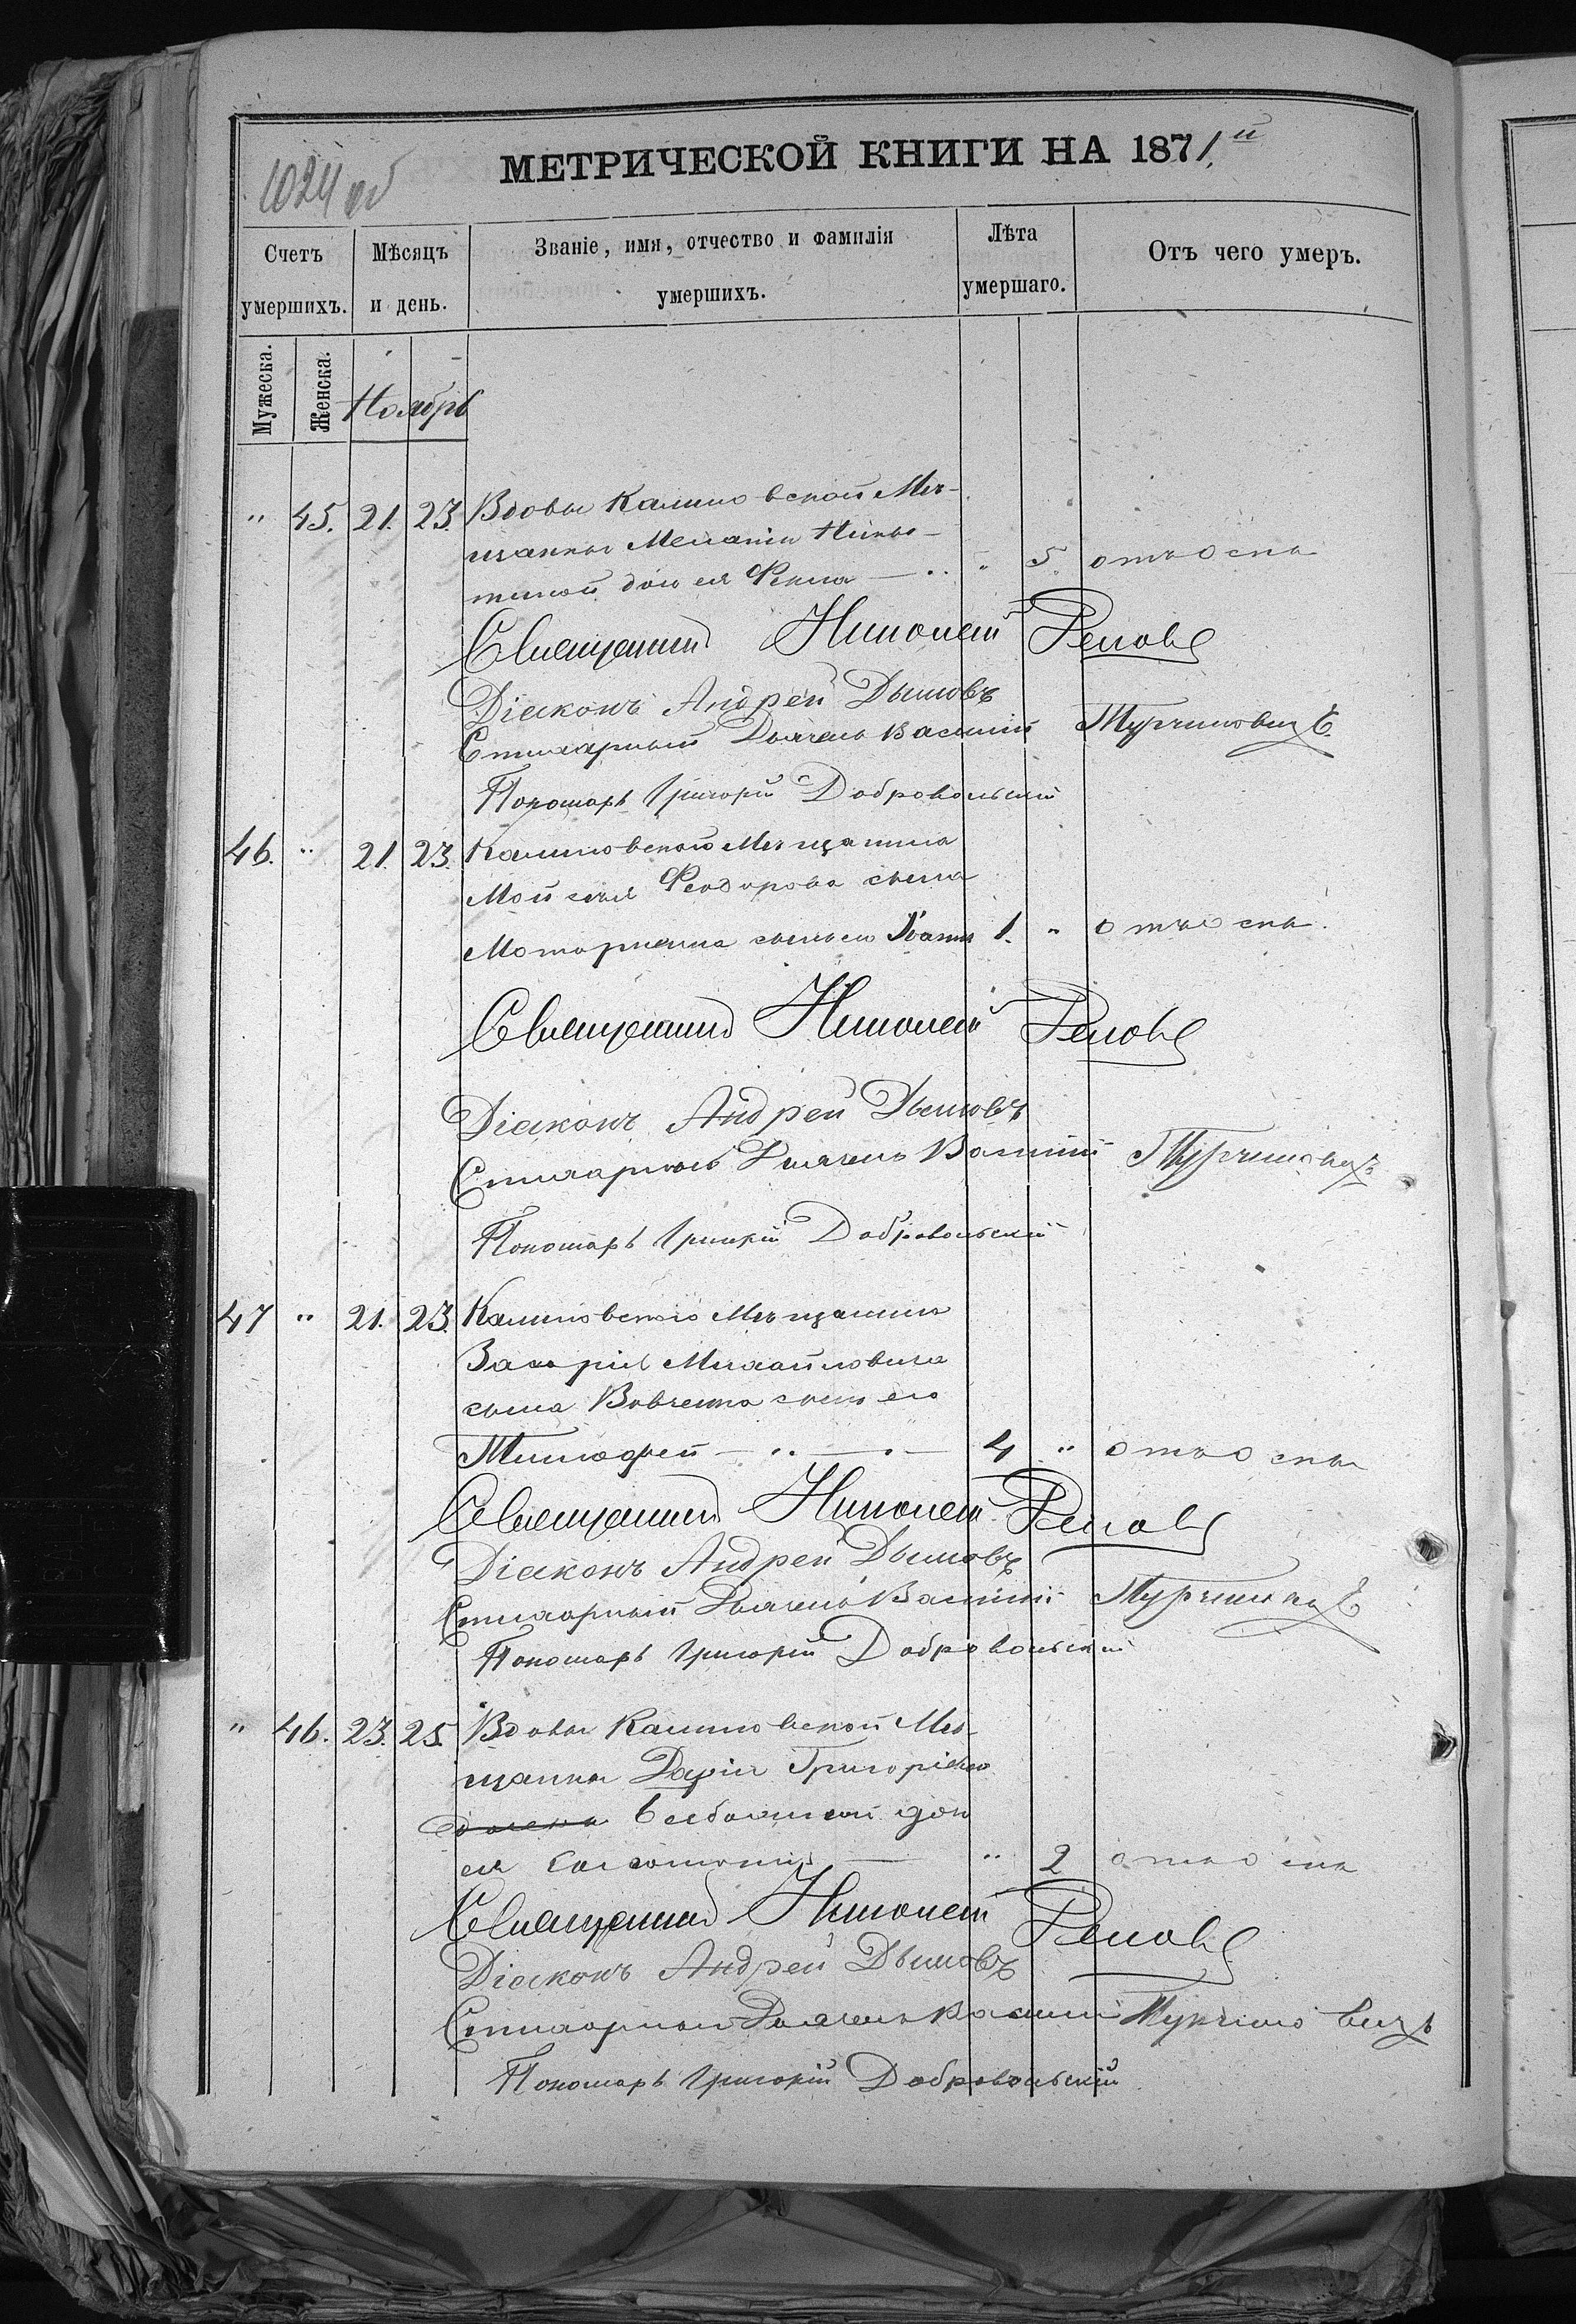 1024 об
МЕТРИЧЕСКОЙ КНИГИ НА 1871.й
Счетъ умершихъ.
Мѣсяцъ и день.
Званіе, имя, отчество и фамилія умершихъ.
Лѣта умершаго.
Отъ чего умеръ.
Мужеска.
Женска.
Ноябрь
" 45. 21. 23. Вдовы Калиновской Мѣ-
щанки Меланіи
дочь ея Фекла — .. " 5. отъ оспы
Священникъ Николай Реповъ
Діаконъ Андрей Дымовъ
Стихарный Дьячекъ Василій Турчиновичъ.
Пономарь Григорій Добровольскій
46. " 21. 23. Калиновского Мѣщанина
Мойсея Феодорова сына
сынъ его Іоаннъ 1. " отъ оспы.
Священникъ Николай Реповъ
Діаконъ Андрей Дымовъ
Стихарный Дьячекъ Василій Турчиновичъ
Пономарь Григорій Добровольскій
47 " 21. 23. Калиновского Мѣщанина
Захарія Михайловича
сына Вовченка сынъ его
Тимофей — .. — . — 4 " отъ оспы
Священникъ Николай Реповъ
Діаконъ Андрей Дымовъ
Стихарный Дьячекъ Василій Турчиновичъ
Пономарь Григорій Добровольскій
" 46. 23. 25. Вдовы Калиновской Мѣ-
щанки Даріи Григоріевой
дочь
ея — " 2 отъ оспы
Священникъ Николай Реповъ
Діаконъ Андрей Дымовъ
Стихарный Дьячекъ Василій Турчиновичъ
Пономарь Григорій Добровольскій